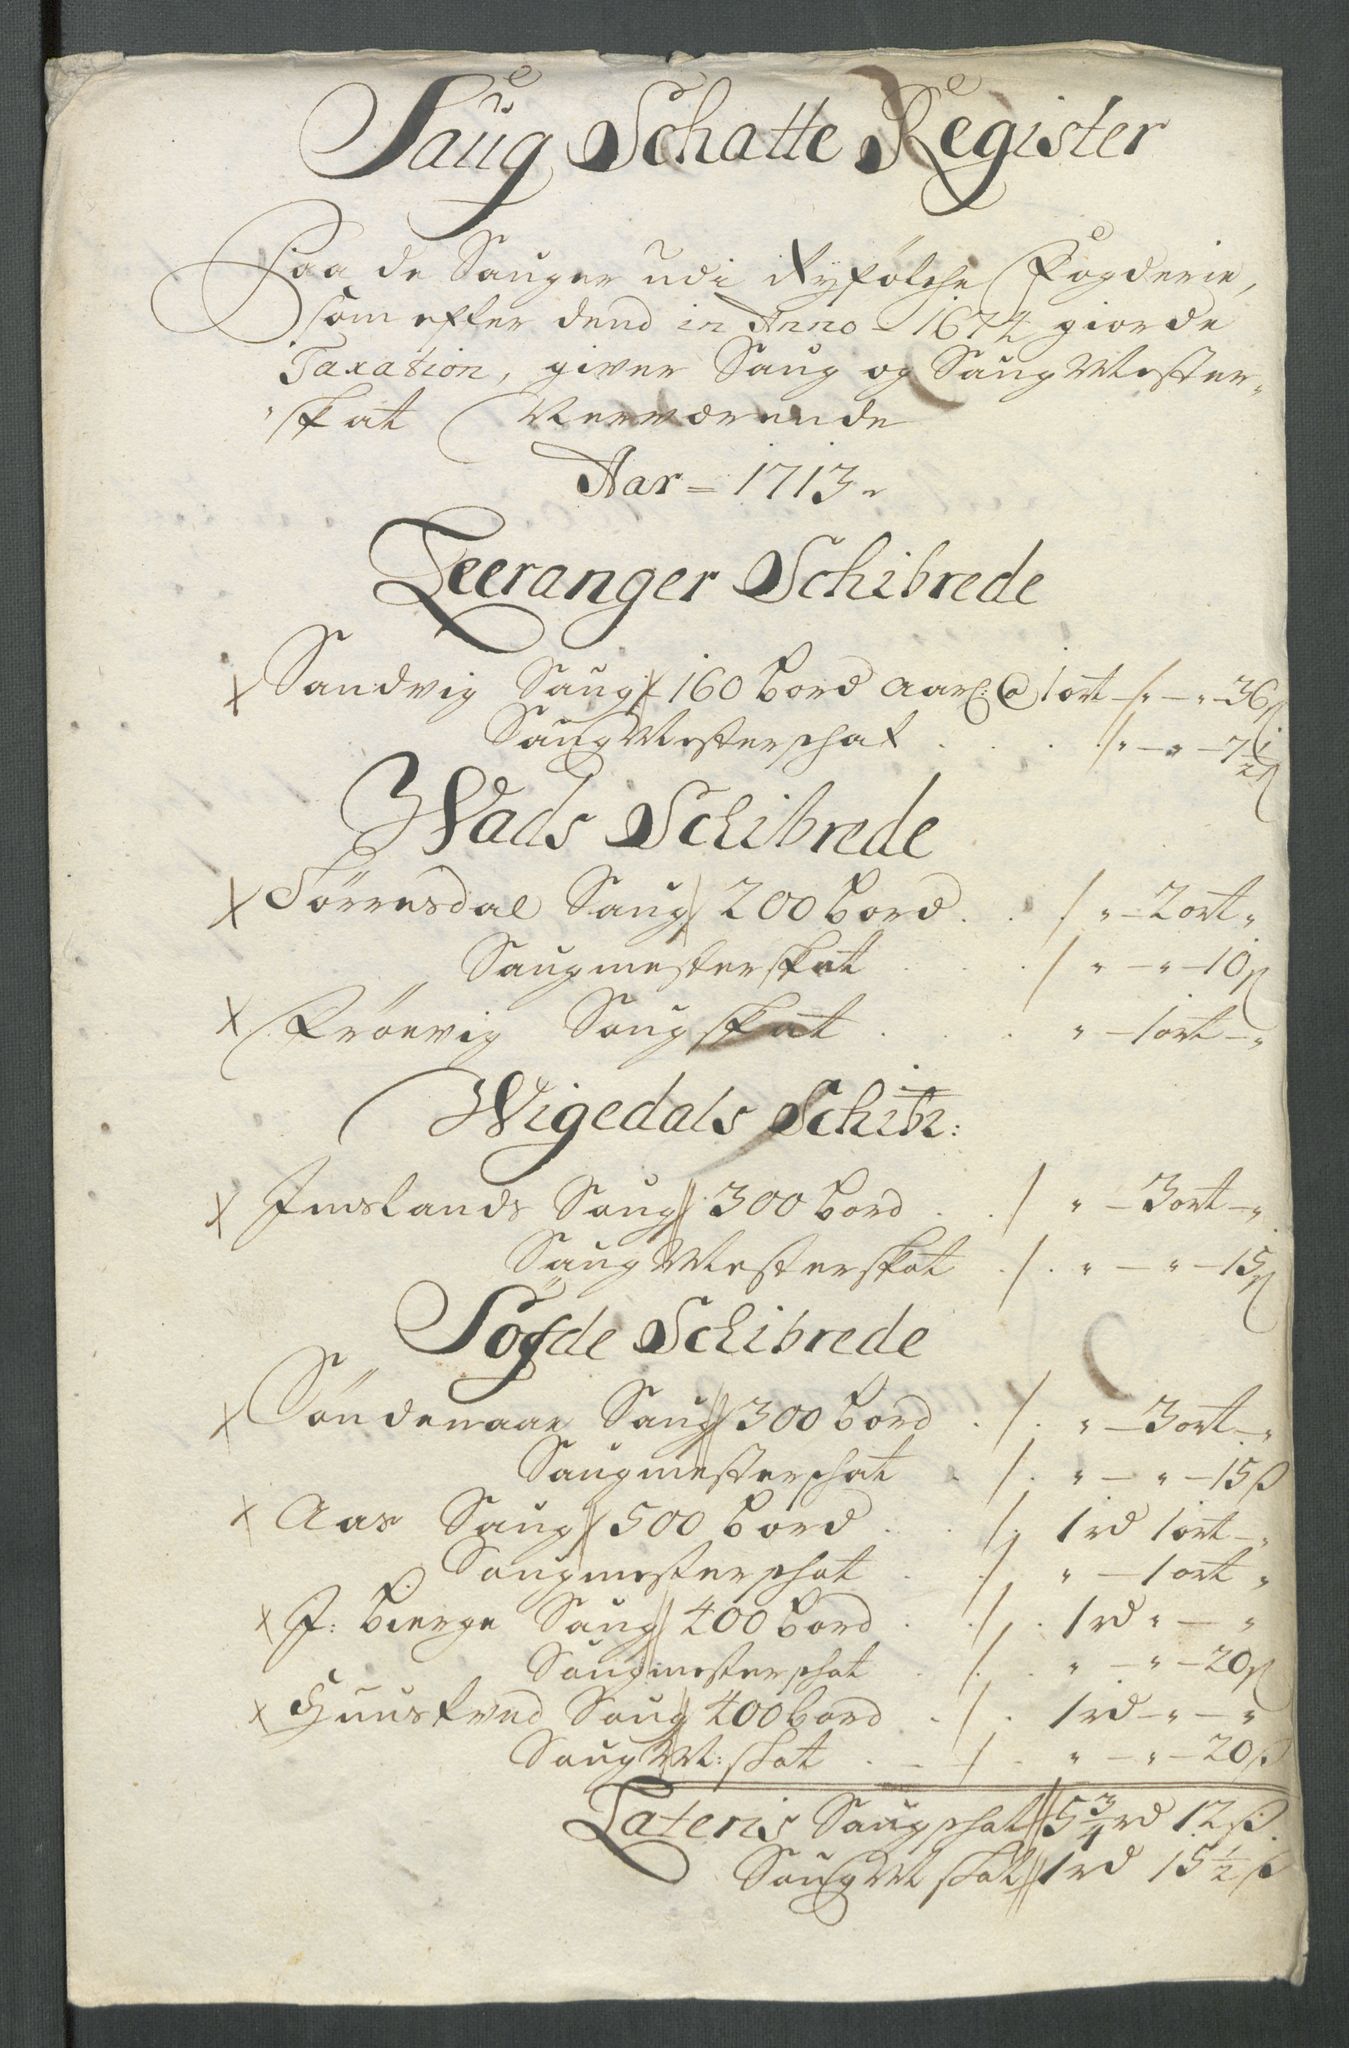 Saug Schatte Register
Paa de Sauger udi Ryfölche Fogderie,
som efter dend in Anno 1672 giorde
Taxation, giver Saug og Saug Mester
skat Nerværende
Aar = 1713
Jeeranger Schibrede
x Sandvig Saug // 160 bord aarl: @ 1 ort / " — " — 36 ß
Saug Mesterschat . . / " — " — 7½ ß
Wads Schibrede
x Törresdal Saug // 200 bord . . / " — 2 ort "
Saugmesterskat . . / " — " — 10 ß
x Fröevig Saugskat . . " — 1 ort — "
Wigedals Schibr:
x Imslands Saug // 300 bord . . / " — 3 ort — "
Saug Mesterskat . / . " — " — 15 ß
Söfde Schibrede
x Söndenaae Saug // 300 bord . / . " — 3 ort — "
Saugmesterschat . / . " — " — 15 ß
x Aas Saug // 500 bord . . / . 1 rd 1 ort — "
Saugmesterschat . . / " — 1 ort "
x I: bierge Saug // 400 bord . . / . 1 rd " — "
Saugmesterschat . / . " — " — 20 ß
x Huusfved Saug // 400 bord . / . 1 rd — " — "
Saug M: skat . — / . " — " — 20 ß
Lateris Saugschat // 5¾ rd 12 ß.
Saug M skat // 1 rd 15½ ß